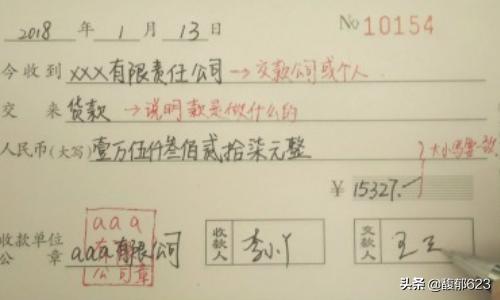 2018 年 1 月 13 日 No 10154
今收到 XXX有限责任公司 →交款公司或个人
交来 货款 →说明款是做什么的
人民币(大写) 壹万伍仟叁佰贰拾柒元整
大小写要一致
¥ 15327.—
收款单位公章 aaa有限公司
aaa
有限
公司章
收款人 李小丫
交款人 王三
头条 @馥郁623